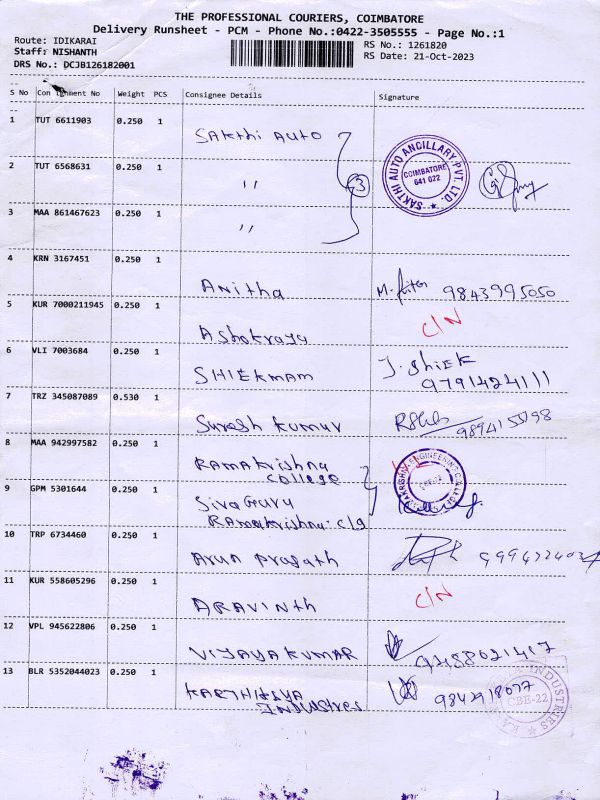 THE PROFESSIONAL COURIERS, COIMBATORE
Delivery Runsheet - PCM - Phone No.:0422-3505555 - Page No.:1
Route: IDIKARAI
RS No.: 1261820
Staff: NISHANTH
RS Date: 21-Oct-2023
DRS No.: DCJB126182001
S No Consignment No Weight PCS Consignee Details Signature
1 TUT 6611903 0.250 1 SAKthi AUTO
SAKTHI AUTO ANCILLARY PVT. LTD. COIMBATORE 641 022
2 TUT 6568631 0.250 1 " 3
3 MAA 861467623 0.250 1 "
4 KRN 3167451 0.250 1 Anitha 9843995050
5 KUR 7000211945 0.250 1 Ashokraja C/N
6 VLI 7003684 0.250 1 SHIEKMAM J. Shiek
9791424111
7 TRZ 345087089 0.530 1 Suresh kumar
8 MAA 942997582 0.250 1 RAMAKrishna
college
ENGINEERING COLLEGE
9 GPM 5301644 0.250 1 SivaGuru
RAmakrishna clg
10 TRP 6734460 0.250 1 Arun prasath
11 KUR 558605296 0.250 1 ARAVINth C/N
12 VPL 945622806 0.250 1 VIJAYAKUMAR 9488021417
13 BLR 5352044023 0.250 1 KARTHIKEYA
INDUSTRIES CBE-22